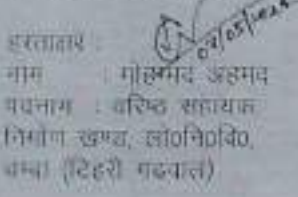 07/05/2024
हस्ताक्षर :
नाम : मोहम्मद अहमद
पदनाम : वरिष्ठ सहायक
निर्माण खण्ड, लो०नि०वि०,
चम्बा (टिहरी गढ़वाल)